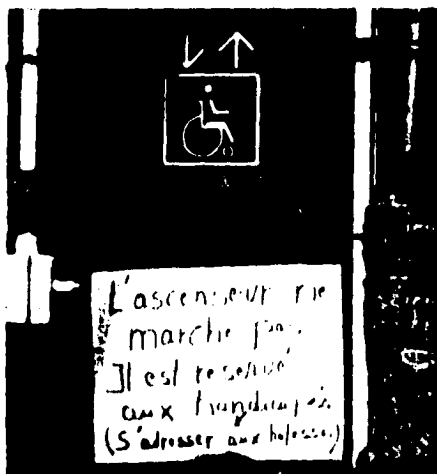 L'ascenseur ne
marche pas.
Il est reservé
aux handicapés.
(S'adresser aux hotesses)